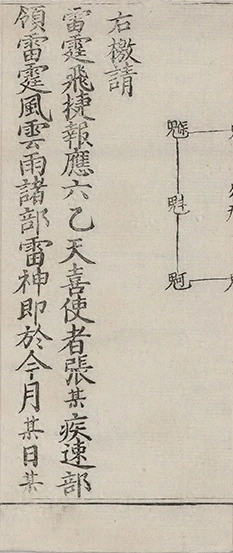 右檄請
雷霆飛捷報應六乙天喜使者張某疾速部
領雷霆風雲雨諸部雷神即於今月某日某